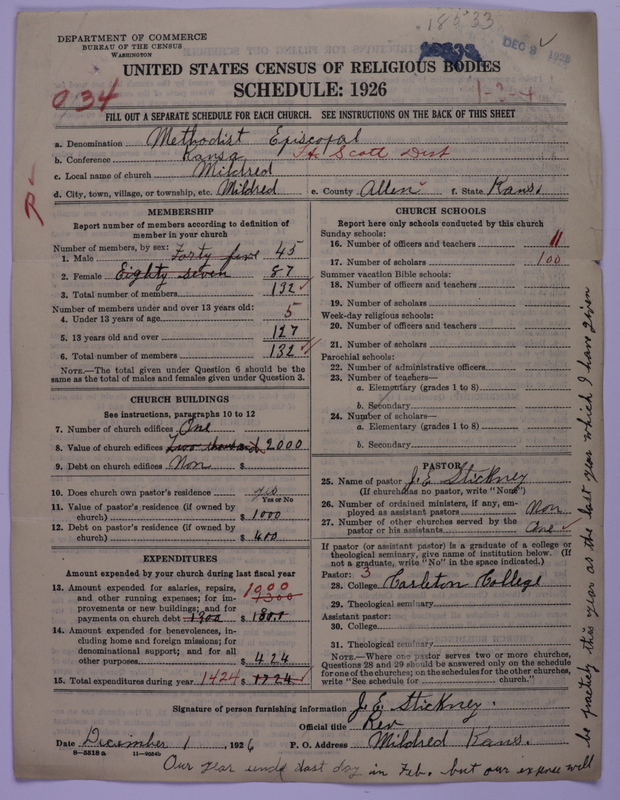 18533
DEPARTMENT OF COMMERCE
BUREAU OF THE CENSUS
WASHINGTON
DEC 8 1926
UNITED STATES CENSUS OF RELIGIOUS BODIES
SCHEDULE: 1926
034
1-3-4
FILL OUT A SEPARATE SCHEDULE FOR EACH CHURCH. SEE INSTRUCTIONS ON THE BACK OF THIS SHEET
a. Denomination Methodist Episcopal
b. Conference Kansa Ft Scott Dist
c. Local name of church Mildred
d. City, town, village, or township, etc. Mildred e. County Allen f. State Kans.
R
MEMBERSHIP
Report number of members according to definition of
member in your church
Number of members, by sex:
1. Male Forty five 45
2. Female Eighty seven 87
3. Total number of members 132
Number of members under and over 13 years old:
4. Under 13 years of age 5
5. 13 years old and over 127
6. Total number of members 132
NOTE.—The total given under Question 6 should be the
same as the total of males and females given under Question 3.
CHURCH BUILDINGS
See instructions, paragraphs 10 to 12
7. Number of church edifices One
8. Value of church edifices Two thousand 2000
9. Debt on church edifices Non $
10. Does church own pastor's residence yes
Yes or No
11. Value of pastor's residence (if owned by
church) $ 1000
12. Debt on pastor's residence (if owned by
church) $ 400
EXPENDITURES
Amount expended by your church during last fiscal year
13. Amount expended for salaries, repairs,
and other running expenses; for im-
provements or new buildings; and for
payments on church debt 1300 $
1000
1300
14. Amount expended for benevolences, in-
cluding home and foreign missions; for
denominational support; and for all
other purposes $ 424
15. Total expenditures during year 1424 $ 1724
CHURCH SCHOOLS
Report here only schools conducted by this church
Sunday schools:
16. Number of officers and teachers 11
17. Number of scholars 100
Summer vacation Bible schools:
18. Number of officers and teachers
19. Number of scholars
Week-day religious schools:
20. Number of officers and teachers
21. Number of scholars
Parochial schools:
22. Number of administrative officers
23. Number of teachers—
a. Elementary (grades 1 to 8)
b. Secondary
24. Number of scholars—
a. Elementary (grades 1 to 8)
b. Secondary
PASTOR
25. Name of pastor J. E. Stickney
(If church has no pastor, write "None")
26. Number of ordained ministers, if any, em-
ployed as assistant pastors Non
27. Number of other churches served by the
pastor or his assistants One
If pastor (or assistant pastor) is a graduate of a college or
theological seminary, give name of institution below. (If
not a graduate, write "No" in the space indicated.)
Pastor: 3
28. College Carleton College
29. Theological seminary
Assistant pastor:
30. College
31. Theological seminary
NOTE.—Where one pastor serves two or more churches,
Questions 28 and 29 should be answered only on the schedule
for one of the churches; on the schedules for the other churches,
write "See schedule for church."
Signature of person furnishing information J. E. Stickney.
Official title Rev
Date December 1, 1926 P. O. Address Mildred Kans.
8—5518a 11—9554b
Our year ends last day in Feb. but our expense will
be practicly this year as the last year which I have given